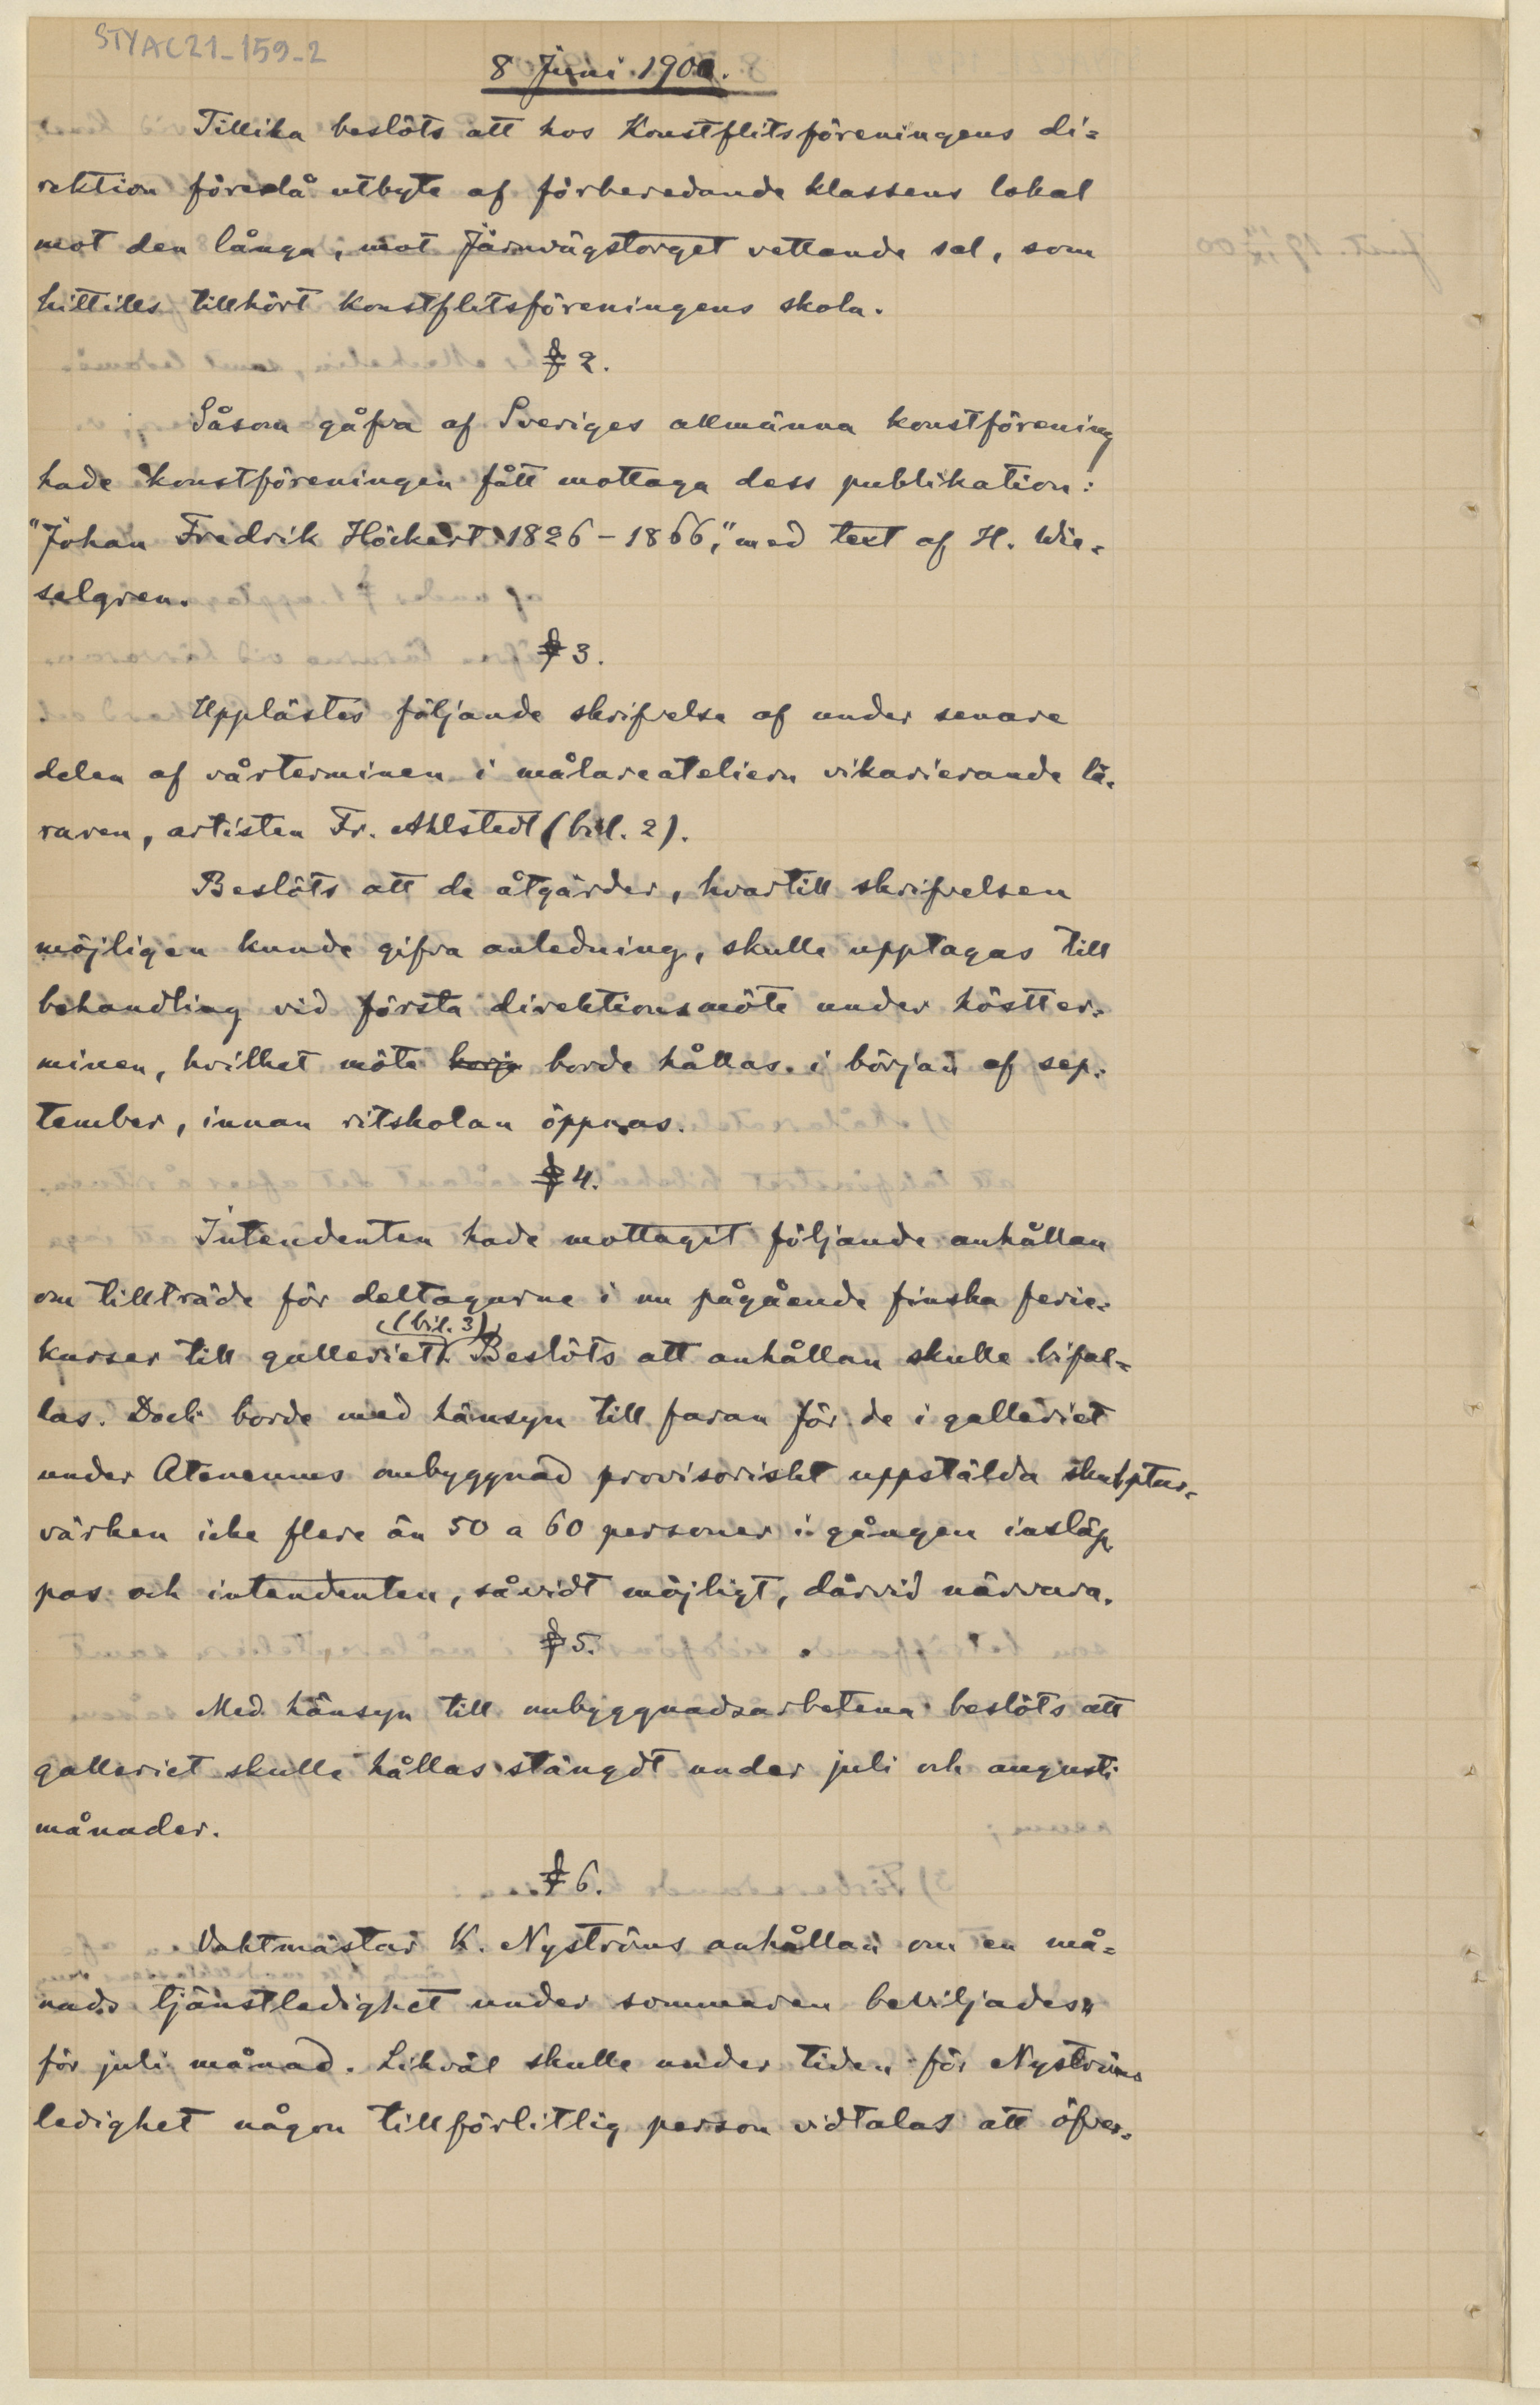 STYAC21-159-2
8 Juni 1900.
Tillika beslöts att hos Konstflitsföreningens di=
rektion föreslå utbyte af förberedande klassens lokal
mot den långa, mot Järnvägstorget vettande sal, som
hittills tillhört Konstflitsföreningens skola.
§ 2.
Såsom gåfva af Sveriges allmänna konstförening
hade Konstföreningen fått mottaga dess publikation:
"Johan Fredrik Höckert 1826-1866," med text af H. Wie=
selgren.
§ 3.
Upplästes följande skrifvelse af under senare
delen af vårterminen i målareateliern vikarierande lä=
raren, artisten Fr. Ahlstedt (bil. 2).
Beslöts att de åtgärder, hvartill skrifvelsen
möjligen kunde gifva anledning, skulle upptagas till
behandling vid första direktionsmöte under höstter=
minen, hvilket möte borde hållas i början af sep=
tember, innan ritskolan öppnas.
§ 4.
Intendenten hade mottagit följande anhållan
om tillträde för deltagarne i nu pågående finska ferie=
(bil. 3)
kurser till galleriet. Beslöts att anhållan skulle bifal=
las. Dock borde med hänsyn till faran för de i galleriet
under Ateneums ombyggnad provisoriskt uppstälda skulptur=
värken icke flere än 50 a 60 personer i gången insläp
pas och intendenten, såvidt möjligt, därvid närvara.
§ 5.
Med hänsyn till ombyggnadsarbetena beslöts att
galleriet skulle hållas stängdt under juli och augusti
månader.
§ 6.
Vaktmästar K. Nyströms anhållan om en må=
nads tjänstledighet under sommaren beviljades
för juli månad. Likväl skulle under tiden för Nyströms
ledighet någon tillförlitlig person vidtalas att öfver=